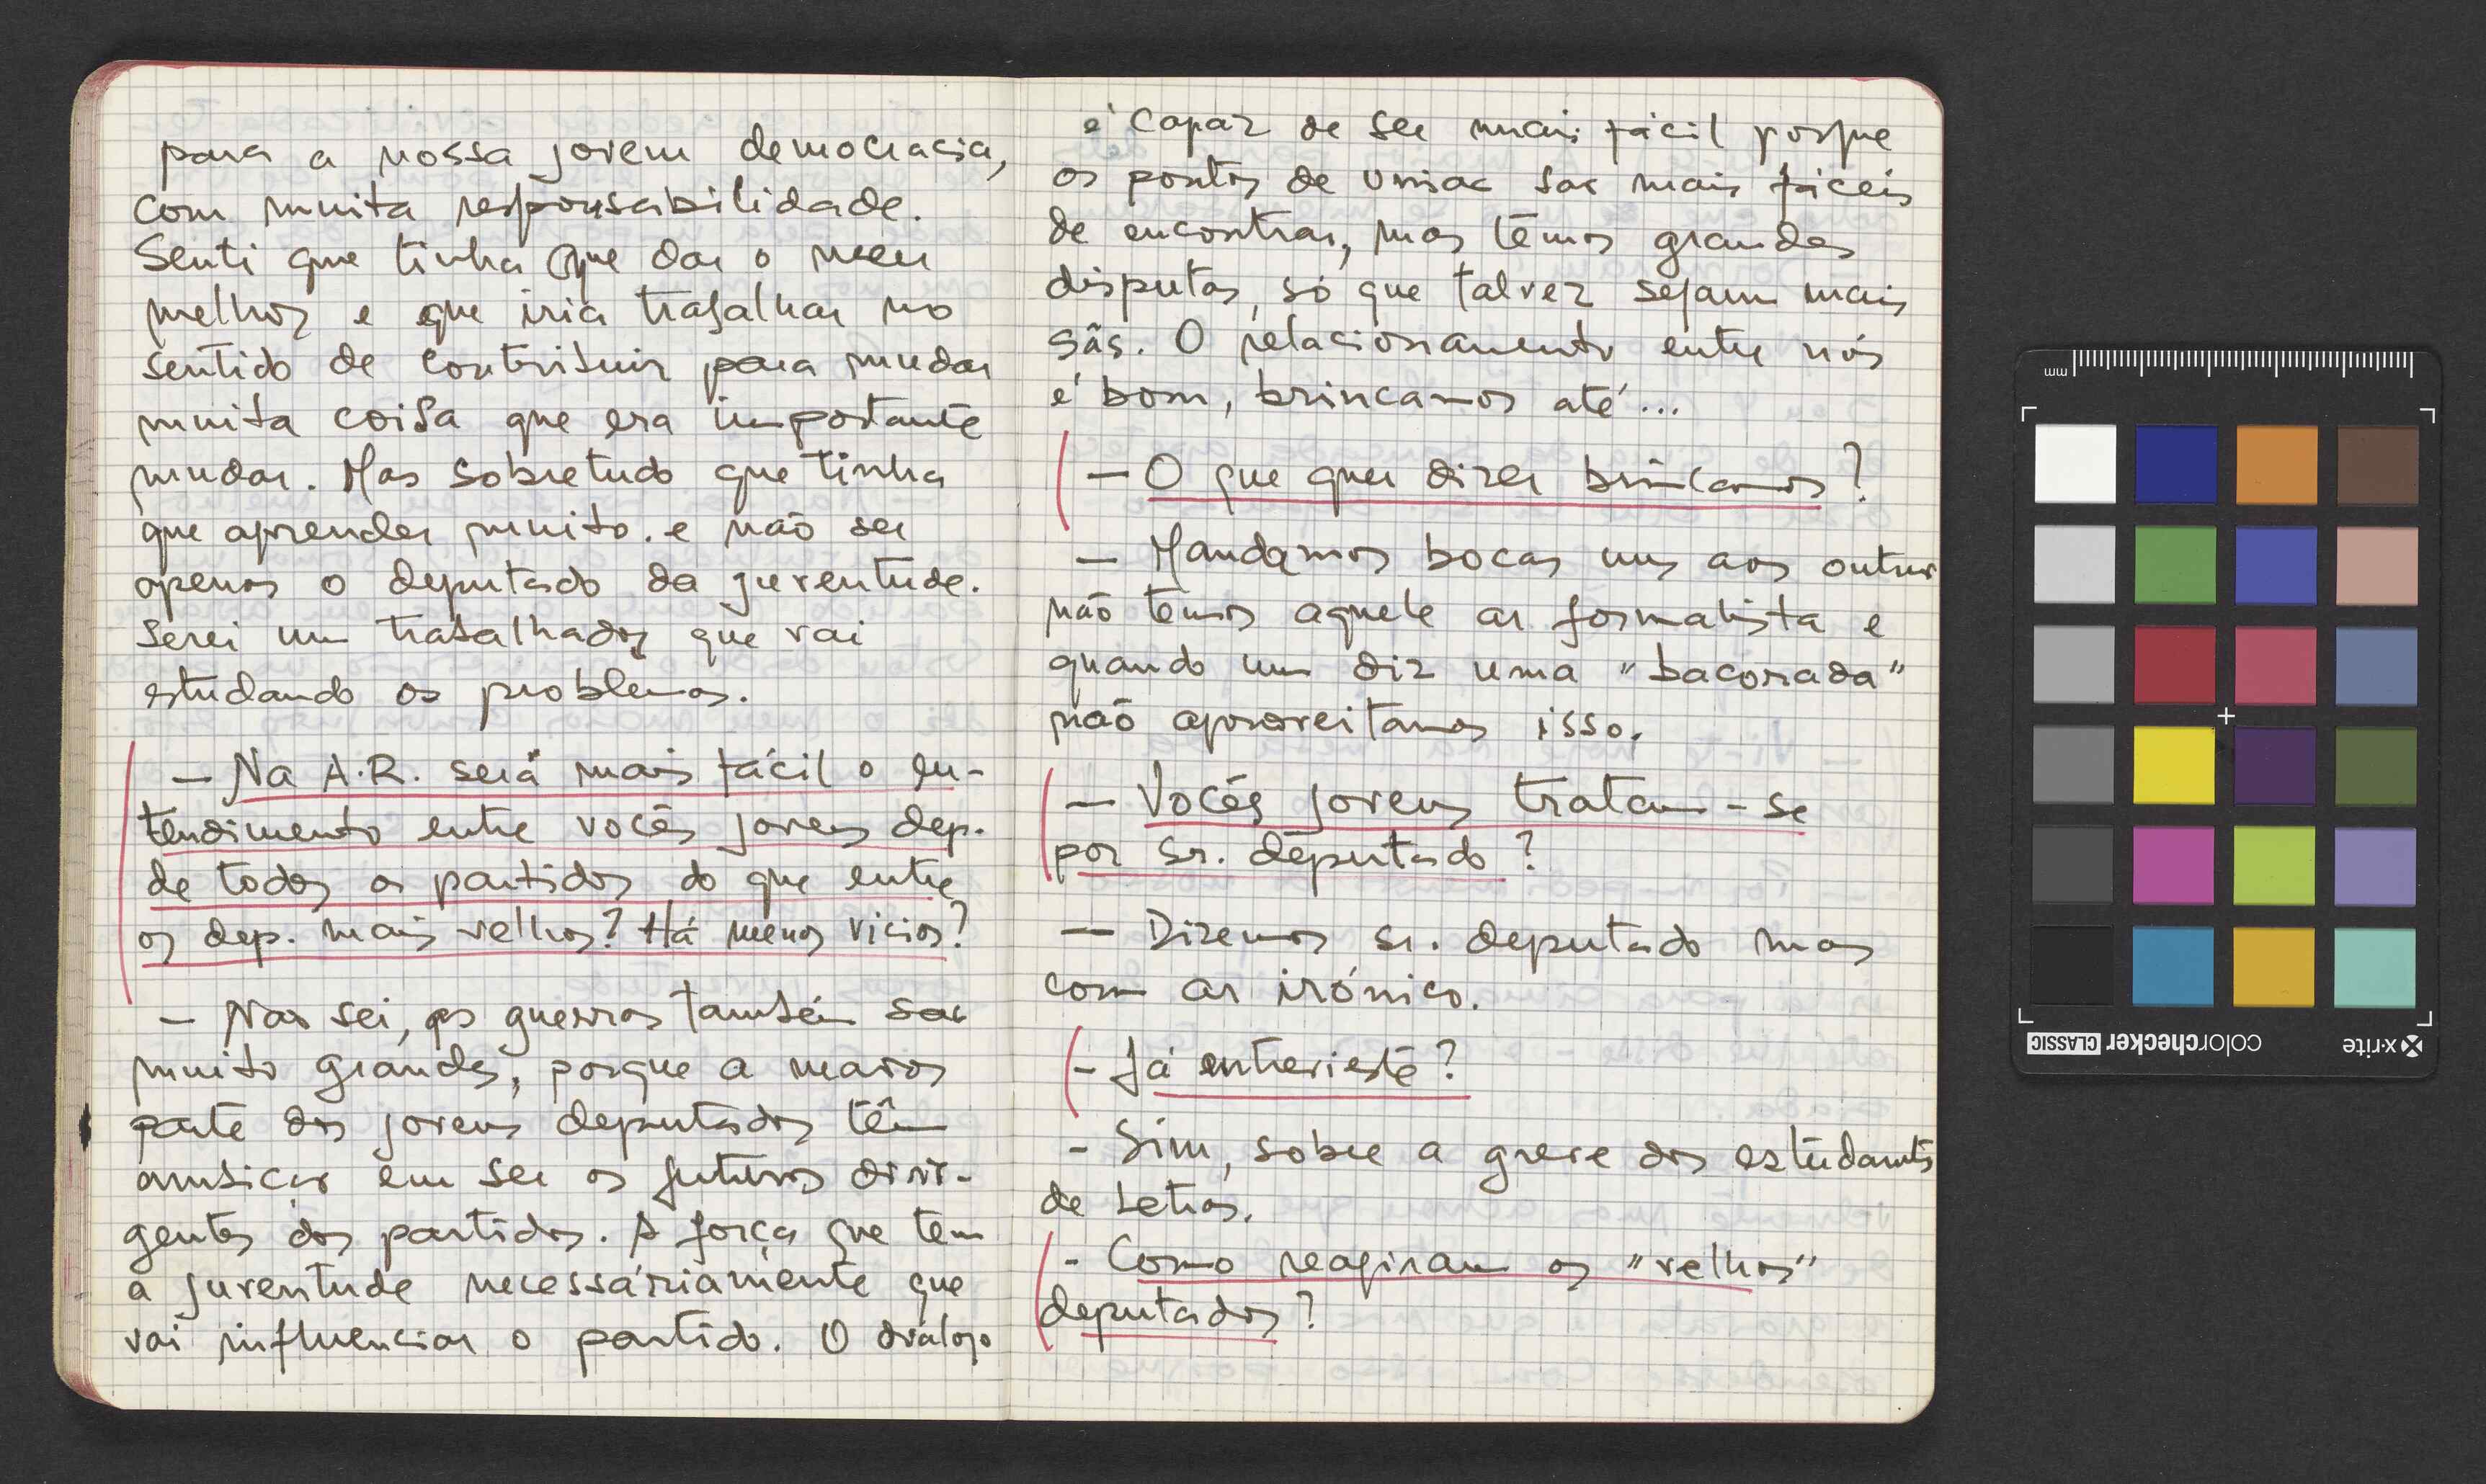 para a nossa jovem democracia,
com muita responsabilidade.
Senti que tinha que dar o meu
melhor e que iria trabalhar no
sentido de contribuir para mudar
muita coisa que era importante
mudar. Mas sobretudo que tinha
que aprender muito. e não ser
apenas o deputado da juventude.
Serei um trabalhador que vai
estudando os problemas.
— Na A.R. será mais fácil o en-
tendimento entre vocês jovens dep.
de todos os partidos do que entre
os dep. mais velhos? Há menos vicios?
— Não sei, as guerras também são
muito grandes, porque a maior
parte dos jovens deputados têm
ambição em ser os futuros diri-
gentes dos partidos. A força que tem
a juventude necessáriamente que
vai influenciar o partido. O diálogo
é capaz de ser mais fácil porque
os pontos de união são mais fáceis
de encontrar, mas têmos grandes
disputas, só que talvez sejam mais
sãs. O relacionamento entre nós
é bom, brincamos até...
— O que quer dizer brincamos?
— Mandamos bocas uns aos outros
não temos aquele ar formalista e
quando um diz uma "bacorada"
não aproveitamos isso.
— Vocês jovens tratam-se
por sr. deputado?
— Dizemos sr. deputado mas
com ar irónico.
- Já entrevieste?
- Sim, sobre a greve dos estudantes
de Letras.
- Como reagiram os "velhos"
deputados?
mm
x-rite colorchecker CLASSIC